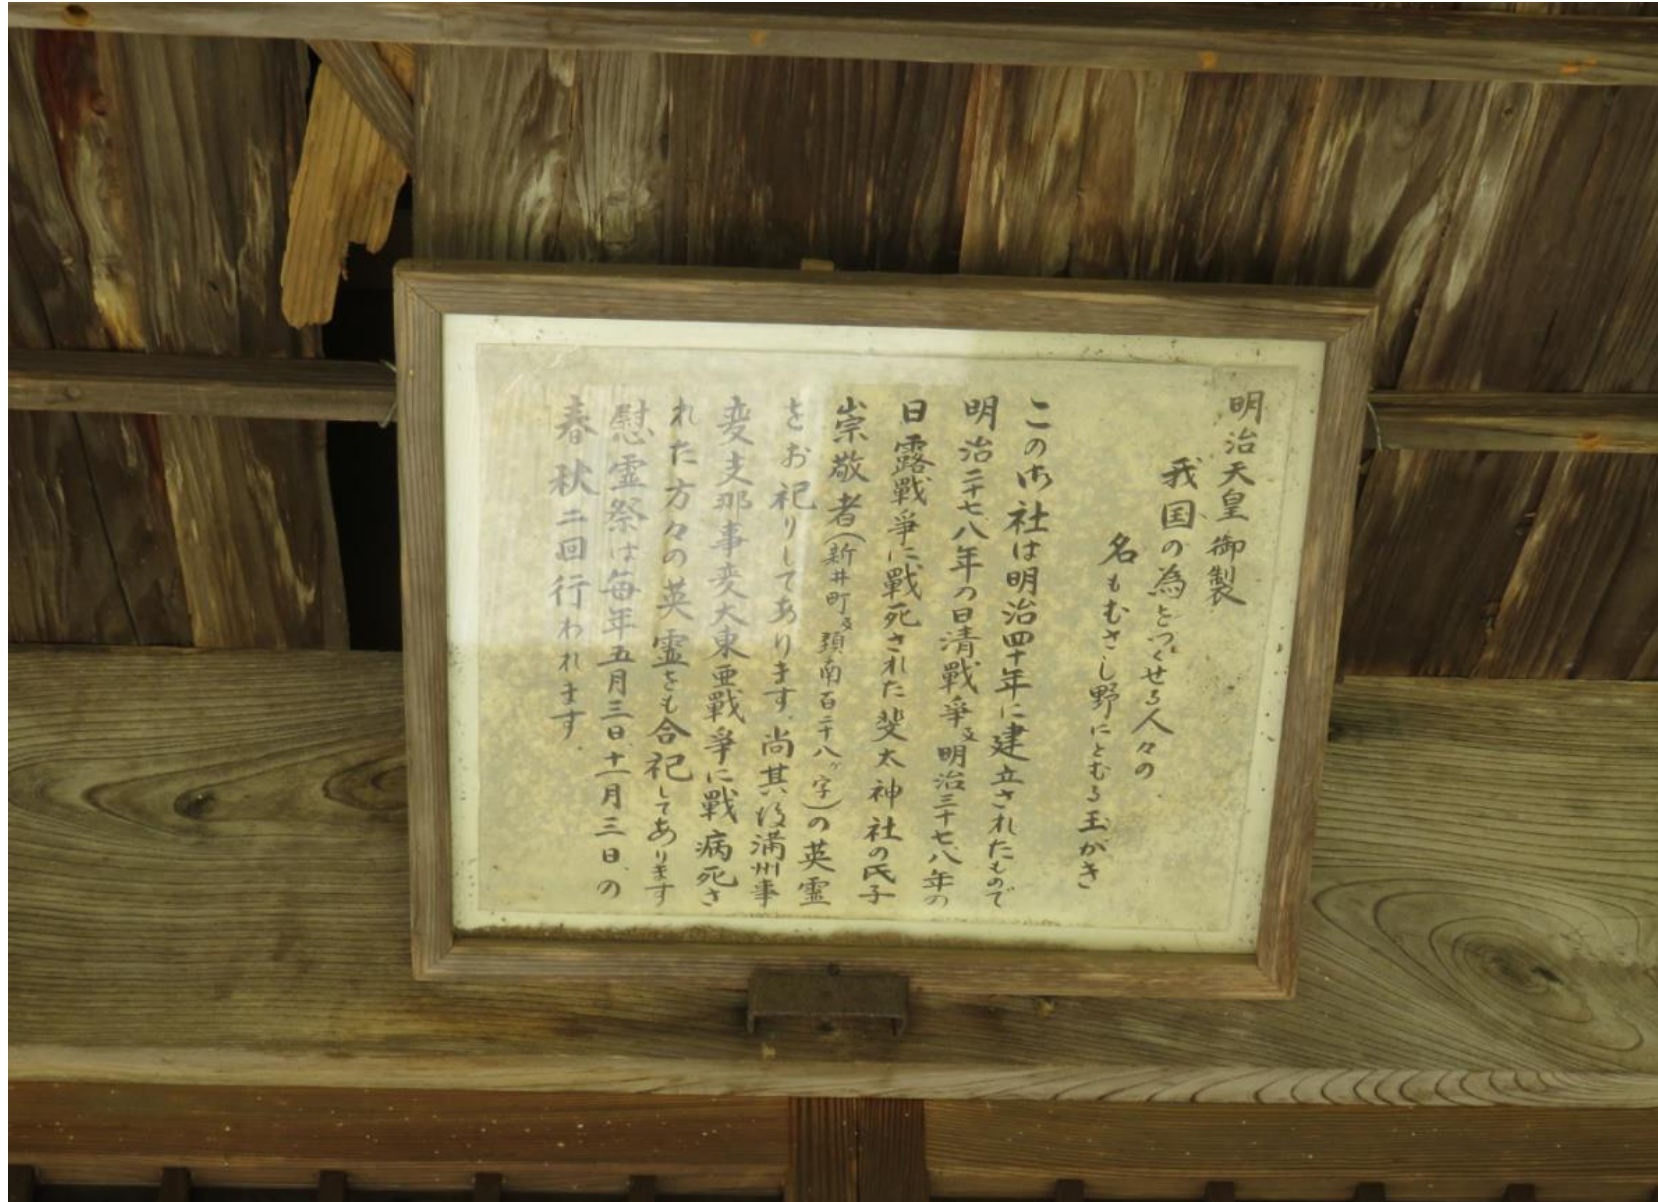 明治天皇御製
我国の為をつくせる人々の
名もむさし野にとむる玉がき
この御社は明治四十年に建立されたもので
明治二十七八年の日清戦争及明治三十七八年の
日露戦争に戦死された斐太神社の氏子
崇敬者(新井町及頸南百二十八ヶ字)の英霊
をお祀りしてあります.尚其後満州事
変支那事変大東亜戦争に戦病死さ
れた方々の英霊をも合祀してあります
慰霊祭は毎年五月三日、十一月三日、の
春秋二回行われます.